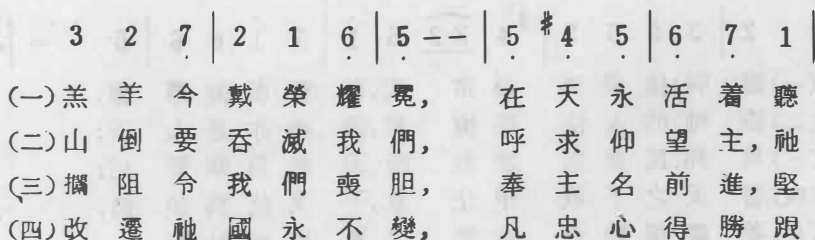 3 2 7 | 2 1 6 | 5 - - | 5 #4 5 | 6 7 1 |
(一)羔羊今戴榮耀冕，在天永活着聽
(二)山倒要吞滅我們，呼求仰望主，祂
(三)攔阻令我們喪胆，奉主名前進，堅
(四)改遷祂國永不變，凡忠心得勝跟